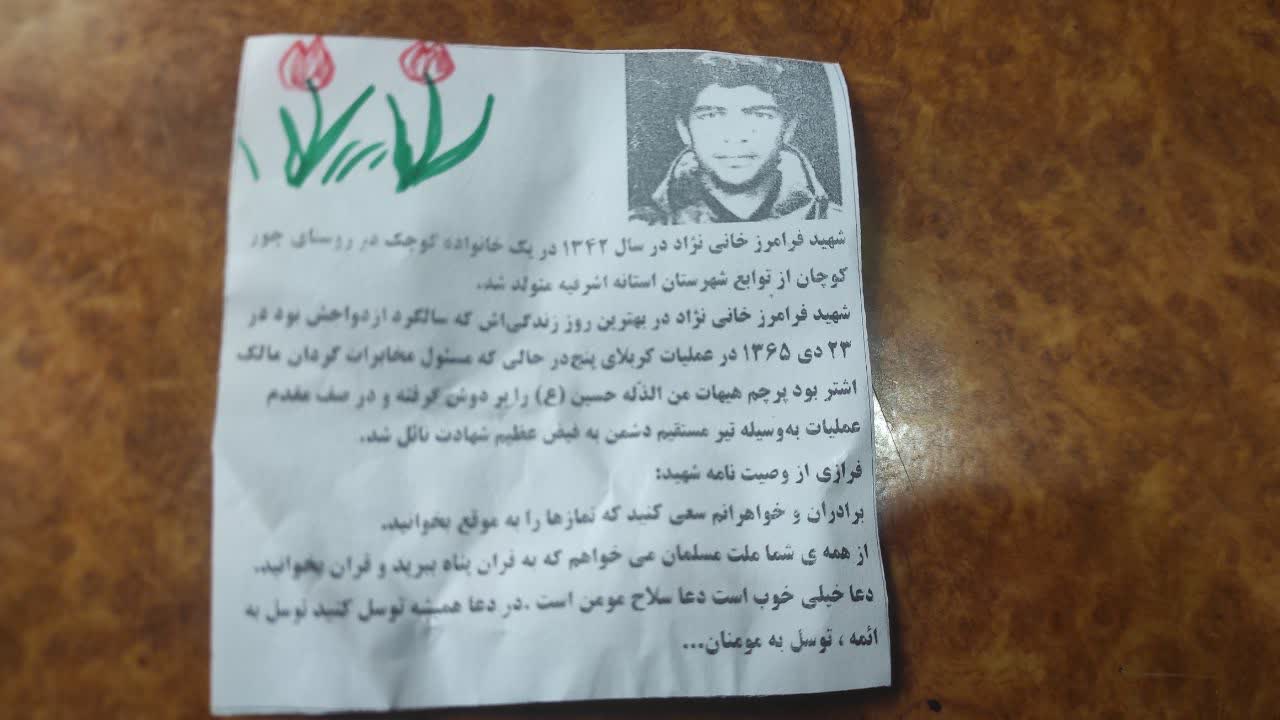 شهید فرامرز خانی نژاد در سال ۱۳۴۲ در یک خانواده کوچک در روستای جور
کوچان از توابع شهرستان استانه اشرفیه متولد شد.
شهید فرامرز خانی نژاد در بهترین روز زندگی‌اش که سالگرد ازدواجش بود در
۲۳ دی ۱۳۶۵ در عملیات کربلای پنج‌در حالی که مسئول مخابرات گردان مالک
اشتر بود پرچم هیهات من الذّله حسین (ع) را بر دوش گرفته و در صف مقدم
عملیات به‌وسیله تیر مستقیم دشمن به فیض عظیم شهادت نائل شد.
فرازی از وصیت نامه شهید:
برادران و خواهرانم سعی کنید که نمازها را به موقع بخوانید.
از همه ی شما ملت مسلمان می خواهم که به قران پناه ببرید و قران بخوانید.
دعا خیلی خوب است دعا سلاح مومن است .در دعا همیشه توسل کنید توسل به
ائمه ، توسل به مومنان...